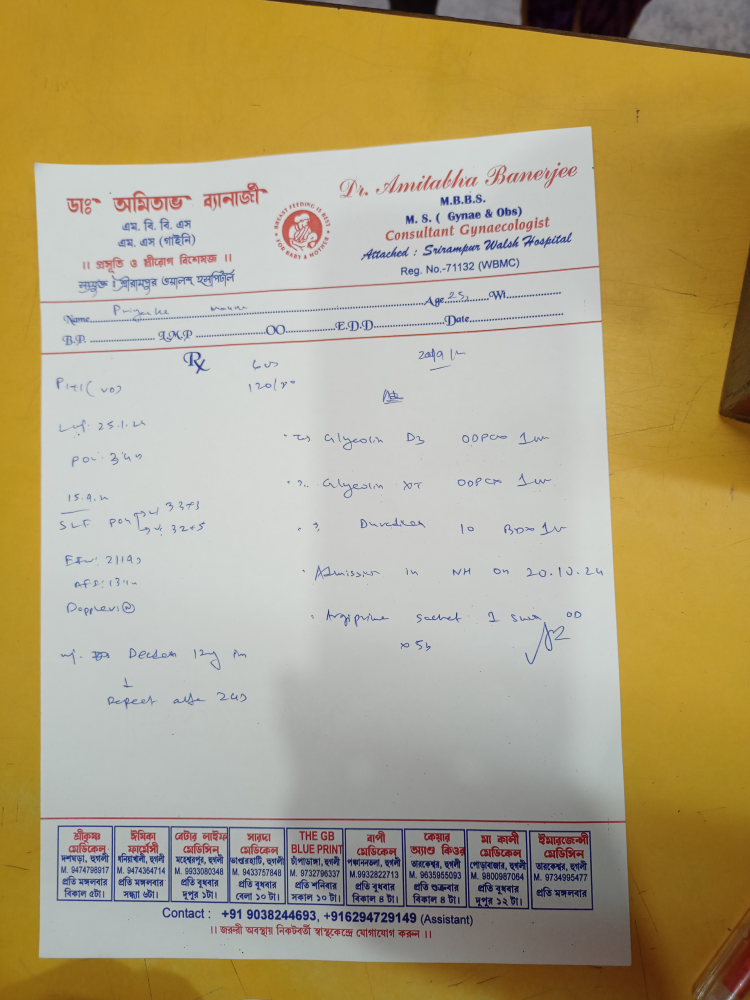 ডাঃ অমিতাভ ব্যানার্জী
এম. বি. বি. এস
এম. এস (গাইনি)
।। প্রসূতি ও স্ত্রীরোগ বিশেষজ্ঞ ।।
সংযুক্ত : শ্রীরামপুর ওয়ালস হসপিটাল
BREAST FEEDING IS BEST FOR BABY & MOTHER
Dr. Amitabha Banerjee
M.B.B.S.
M. S. ( Gynae & Obs)
Consultant Gynaecologist
Attached : Srirampur Walsh Hospital
Reg. No.-71132 (WBMC)
Name Age 25 Wt
B.P. L.M.P OO E.D.D Date
Rx
P1+1
120/
25.1.24
POG 34
15.9.24
SLF POG 33+3
32+5
EFW: 2119
AFI: 13
Doppler: N
12mg Im
Repeat after 24
D3 ODPC x 1
XT ODPC x 1
10 BD x 1
Admission in NH on 20.10.24
Argiprime sachet 1 OD
x 5
শ্রীকৃষ্ণ মেডিকেল
দশঘড়া, হুগলী
M. 9474798917
প্রতি মঙ্গলবার
বিকাল ৫টা।
ঈমিকা ফার্মেসী
ধনিয়াখালী, হুগলী
M. 9474364714
প্রতি মঙ্গলবার
সন্ধ্যা ৬টা।
বেটার লাইফ মেডিসিন
মহেশ্বরপুর, হুগলী
M. 9933080348
প্রতি বুধবার
দুপুর ১টা।
সারদা মেডিকেল
ভাণ্ডারহাটি, হুগলী
M. 9433757848
প্রতি বুধবার
বেলা ১০ টা।
THE GB BLUE PRINT
চাঁপাডাঙ্গা, হুগলী
M. 9732796337
প্রতি শনিবার
সকাল ১০ টা।
বাপী মেডিকেল
পঞ্চাননতলা, হুগলী
M.9932822713
প্রতি বুধবার
বিকাল ৪ টা।
কেয়ার অ্যাণ্ড কিওর
তারকেশ্বর, হুগলী
M. 9635955093
প্রতি শুক্রবার
বিকাল ৪ টা।
মা কালী মেডিকেল
পোড়াবাজার, হুগলী
M. 9800987064
প্রতি বুধবার
দুপুর ১২ টা।
ইমারজেন্সী মেডিসিন
তারকেশ্বর, হুগলী
M. 9734995477
প্রতি মঙ্গলবার
Contact : +91 9038244693, +916294729149 (Assistant)
।। জরুরী অবস্থায় নিকটবর্তী স্বাস্থ্যকেন্দ্রে যোগাযোগ করুন ।।